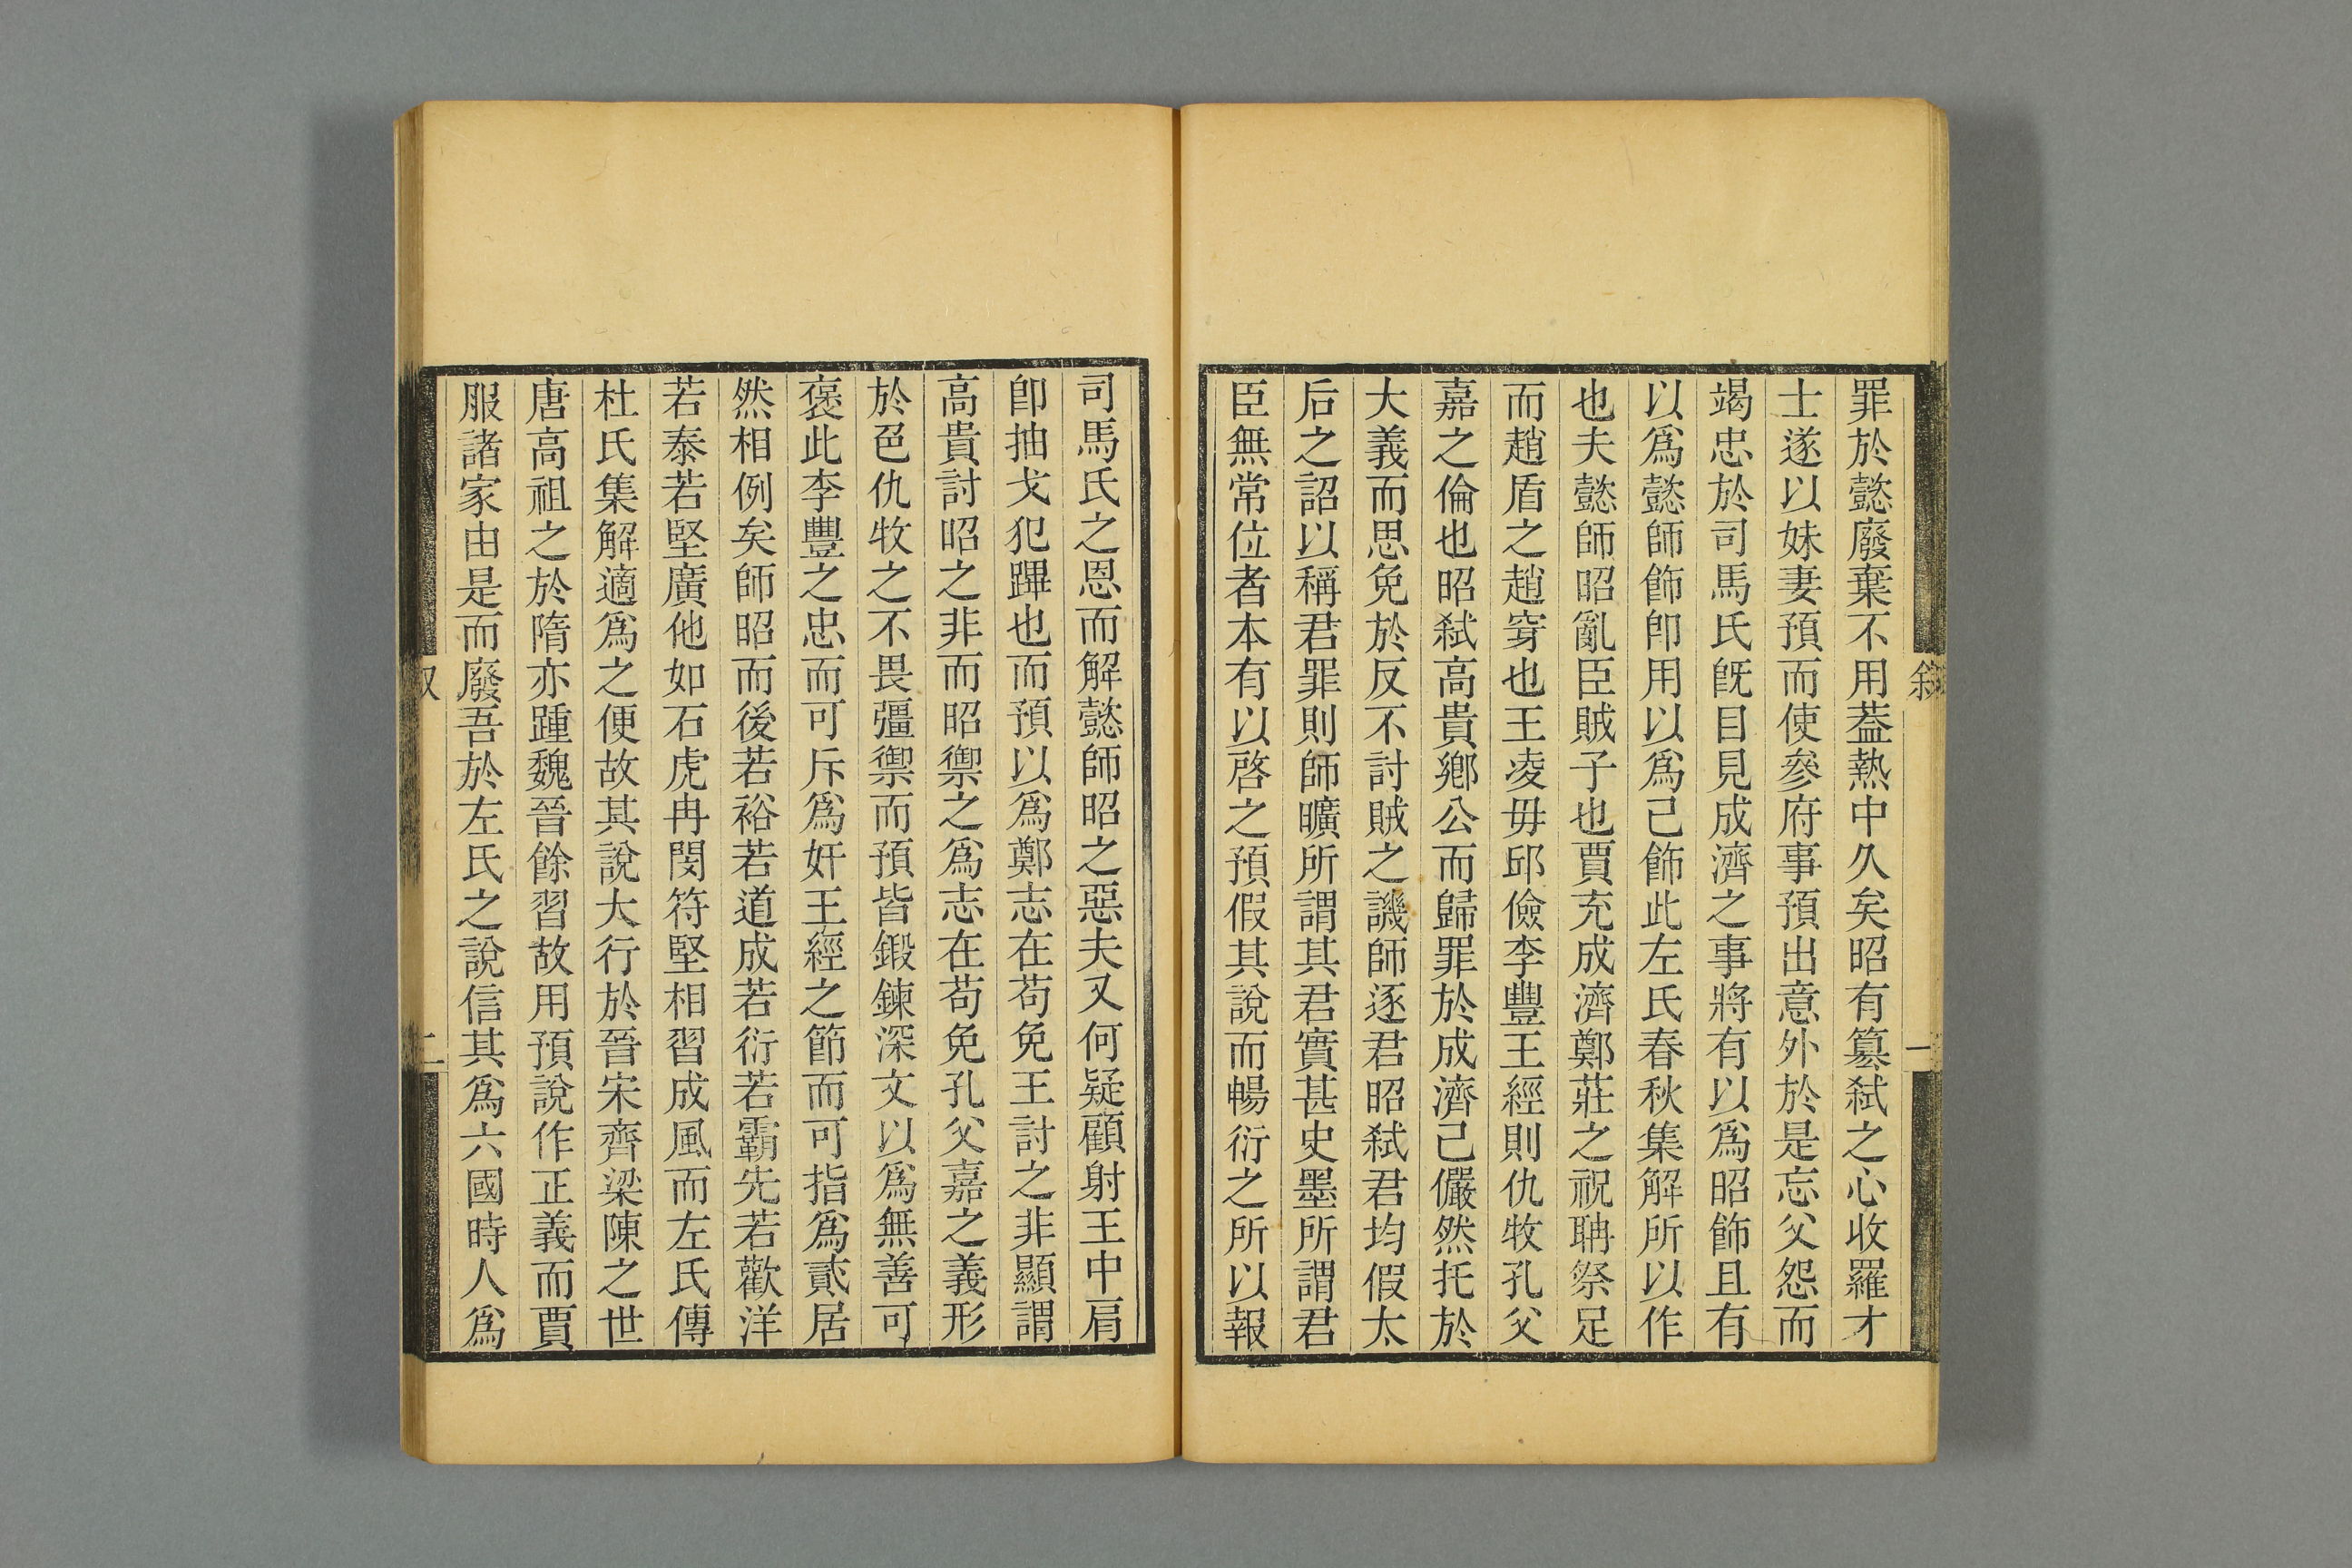 敘
一
罪於懿廢棄不用葢熱中久矣昭有簒弑之心收羅才
士遂以妹妻預而使參府事預出意外於是忘父怨而
竭忠於司馬氏旣目見成濟之事將有以爲昭飾且有
以爲懿師飾卽用以爲己飾此左氏春秋集解所以作
也夫懿師昭亂臣賊子也賈充成濟鄭莊之祝聃祭足
而趙盾之趙穿也王凌毋邱儉李豐王經則仇牧孔父
嘉之倫也昭弑高貴鄉公而歸罪於成濟己儼然托於
大義而思免於反不討賊之譏師逐君昭弑君均假太
后之詔以稱君罪則師曠所謂其君實甚史墨所謂君
臣無常位者本有以啓之預假其說而暢衍之所以報
司馬氏之恩而解懿師昭之惡夫又何疑顧射王中肩
卽抽戈犯蹕也而預以爲鄭志在苟免王討之非顯謂
高貴討昭之非而昭禦之爲志在苟免孔父嘉之義形
於色仇牧之不畏彊禦而預皆鍛鍊深文以爲無善可
褒此李豐之忠而可斥爲奸王經之節而可指爲貳居
然相例矣師昭而後若裕若道成若衍若霸先若歡洋
若泰若堅廣他如石虎冉閔苻堅相習成風而左氏傳
杜氏集解適爲之便故其說大行於晉宋齊梁陳之世
唐高祖之於隋亦踵魏晉餘習故用預說作正義而賈
服諸家由是而廢吾於左氏之說信其爲六國時人爲
二